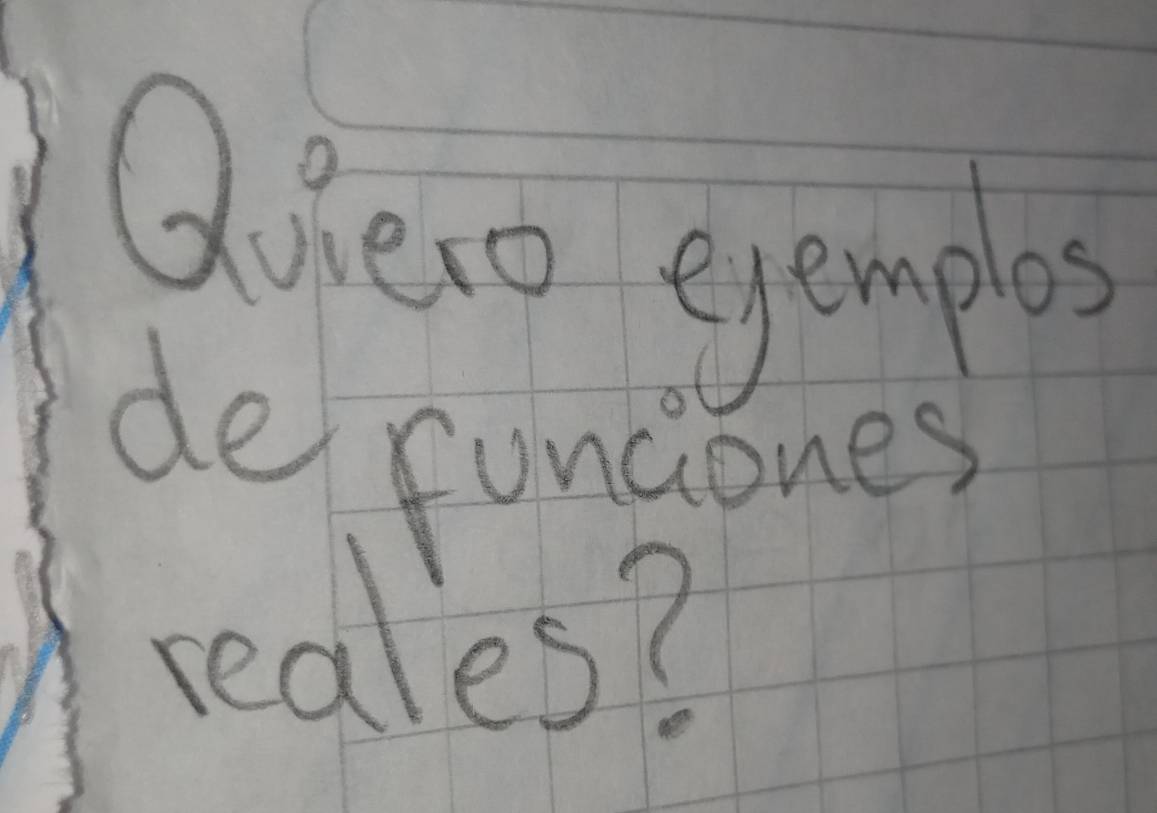 Quiero ejemplos
de funciones
reales?